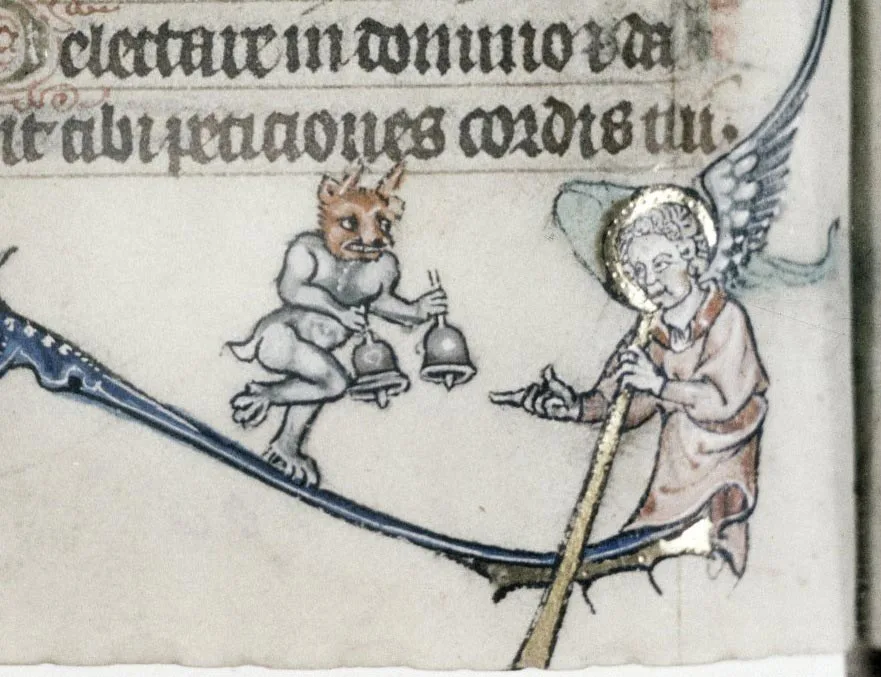 Delectare in domino & da
bit tibi peticiones cordis tui.